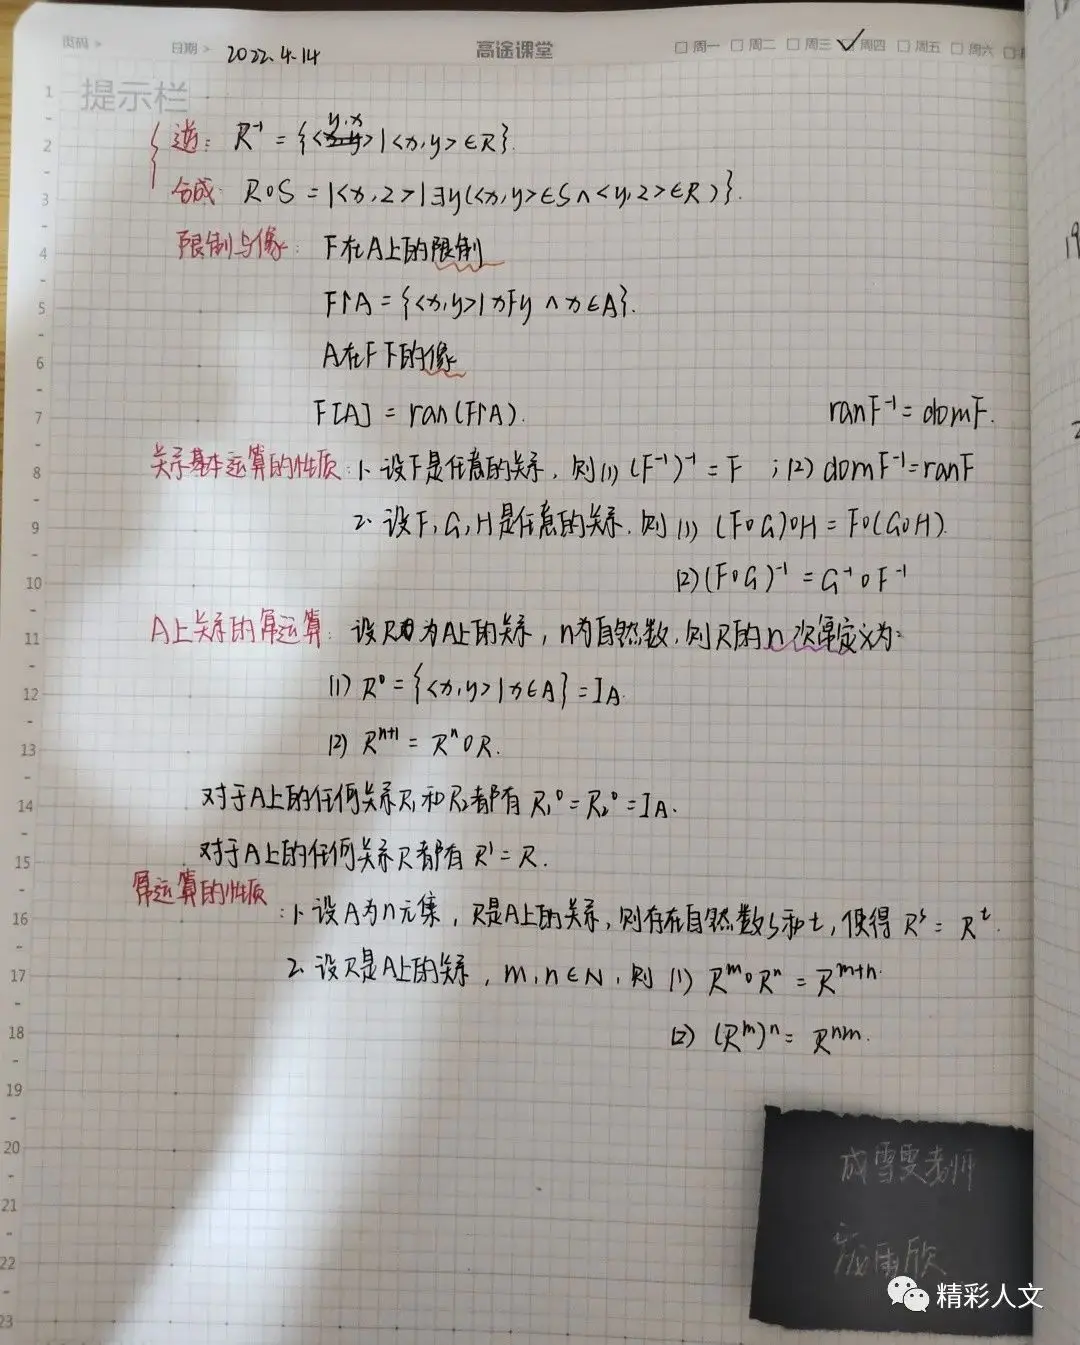 页码 > 日期 > 2022.4.14 高途课堂 □周一 □周二 □周三 ☑周四 □周五 □周六
提示栏
逆: R⁻¹ = {<y,x>|<x,y>∈R}.
合成: R∘S = |<x,z>|∃y(<x,y>∈S∧<y,z>∈R)}.
限制与像: F在A上的限制
F↾A = {<x,y>|xFy ∧ x∈A}.
A在F下的像
F[A] = ran(F↾A). ranF⁻¹ = domF.
关系基本运算的性质: 1. 设F是任意的关系, 则(1) (F⁻¹)⁻¹ = F ; (2) domF⁻¹=ranF
2. 设F,G,H是任意的关系, 则 (1) (F∘G)∘H = F∘(G∘H).
(2) (F∘G)⁻¹ = G⁻¹∘F⁻¹
A上关系的幂运算: 设R为A上的关系, n为自然数, 则R的n次幂定义为:
(1) R⁰ = {<x,y>|x∈A} = I_A.
(2) Rⁿ⁺¹ = Rⁿ∘R.
对于A上的任何关系R₁和R₂都有 R₁⁰ = R₂⁰ = I_A.
对于A上的任何关系R都有 R¹ = R.
幂运算的性质: 1. 设A为n元集, R是A上的关系, 则存在自然数s和t, 使得 Rˢ = Rᵗ.
2. 设R是A上的关系, m,n∈N, 则 (1) Rᵐ∘Rⁿ = Rᵐ⁺ⁿ.
(2) (Rᵐ)ⁿ = Rⁿᵐ.
成雪雯老师
雨欣
精彩人文